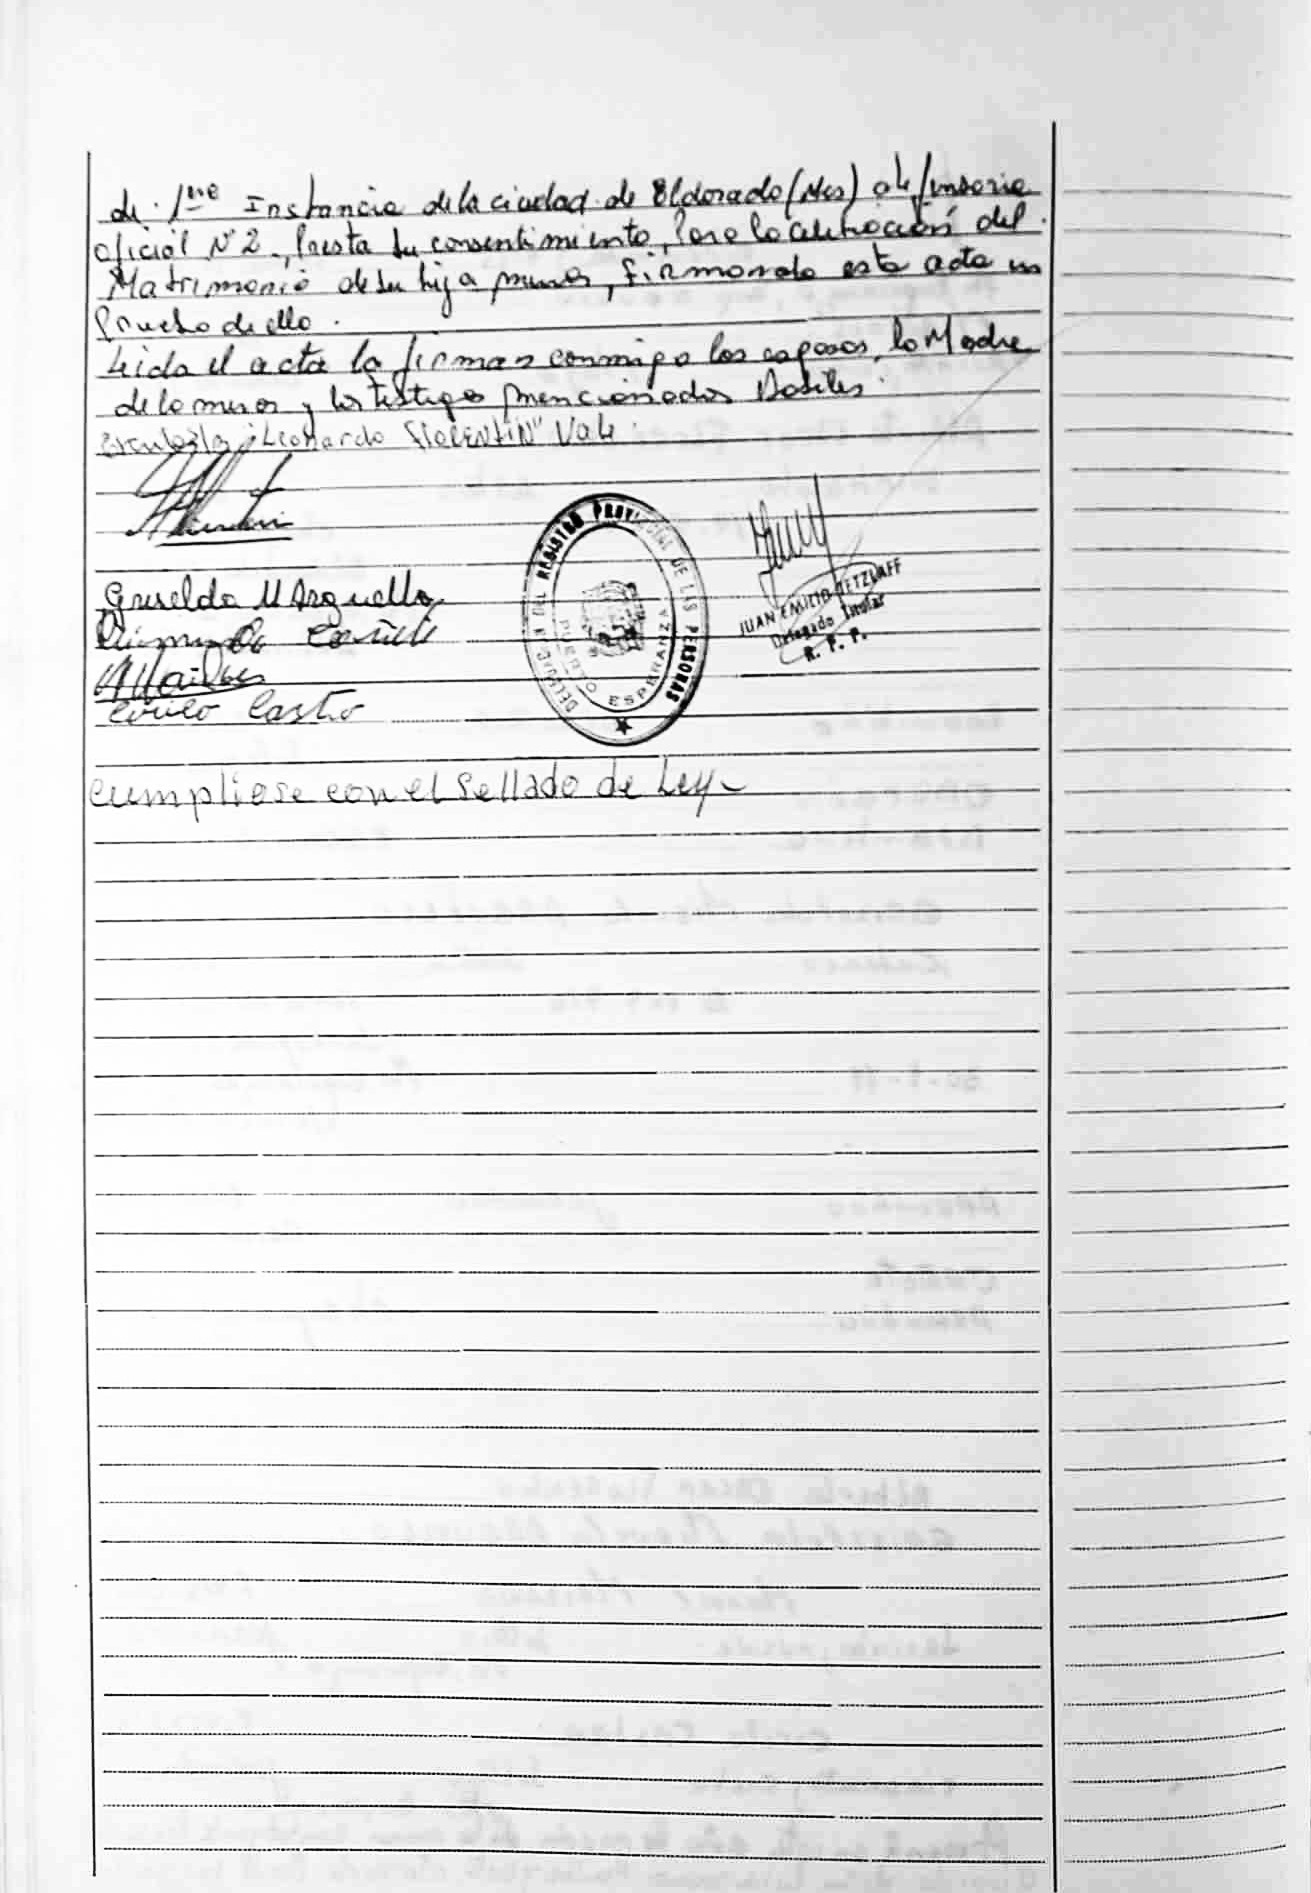 de 1ra Instancia de la ciudad de Eldorado (Mes) defensoria
oficial N° 2, Presta su consentimiento, para la celebración del
Matrimonio de su hija menor, firmando esta acta en
Prueba de ello.
Leida el acta la firman conmigo los esposos, la Madre
de la menor y los testigos mencionados
Leonardo FlorENtiN" Vale.
Griselda M Arguello
Cañete
Cirilo Castro
DEL REGISTRO PROVINCIAL DE LAS PERSONAS
PUERTO ESPERANZA
JUAN EMILIO RETZLAFF
Delegado Titular
R. P. P.
cumpliose con el Sellado de Ley